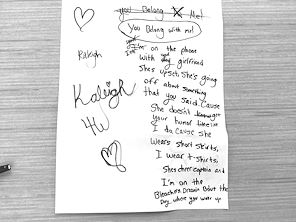 good Belong X Me!
You Belong with me!
I'm on the phone
with girlfriend
Shes upset, She's going
off about something
that you said. Cause
She doesn't
your humor
I do Cause She
Wears short skirts,
I wear t-shirts,
Shes cheer captain and
I'm on the
Bleachers Dreamin Bout the
Day when you wake up
Raleigh
Kaleigh